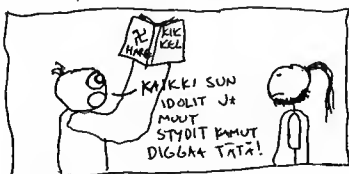 KIK
KEL
KAIKKI SUN
IDOLIT JA
MUUT
STYDIT KAMUT
DIGGAA TÄTÄ!